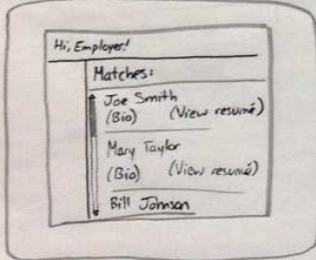 Hi, Employer!
Matches:
Joe Smith
(Bio) (View resumé)
Mary Taylor
(Bio) (View resumé)
Bill Johnson